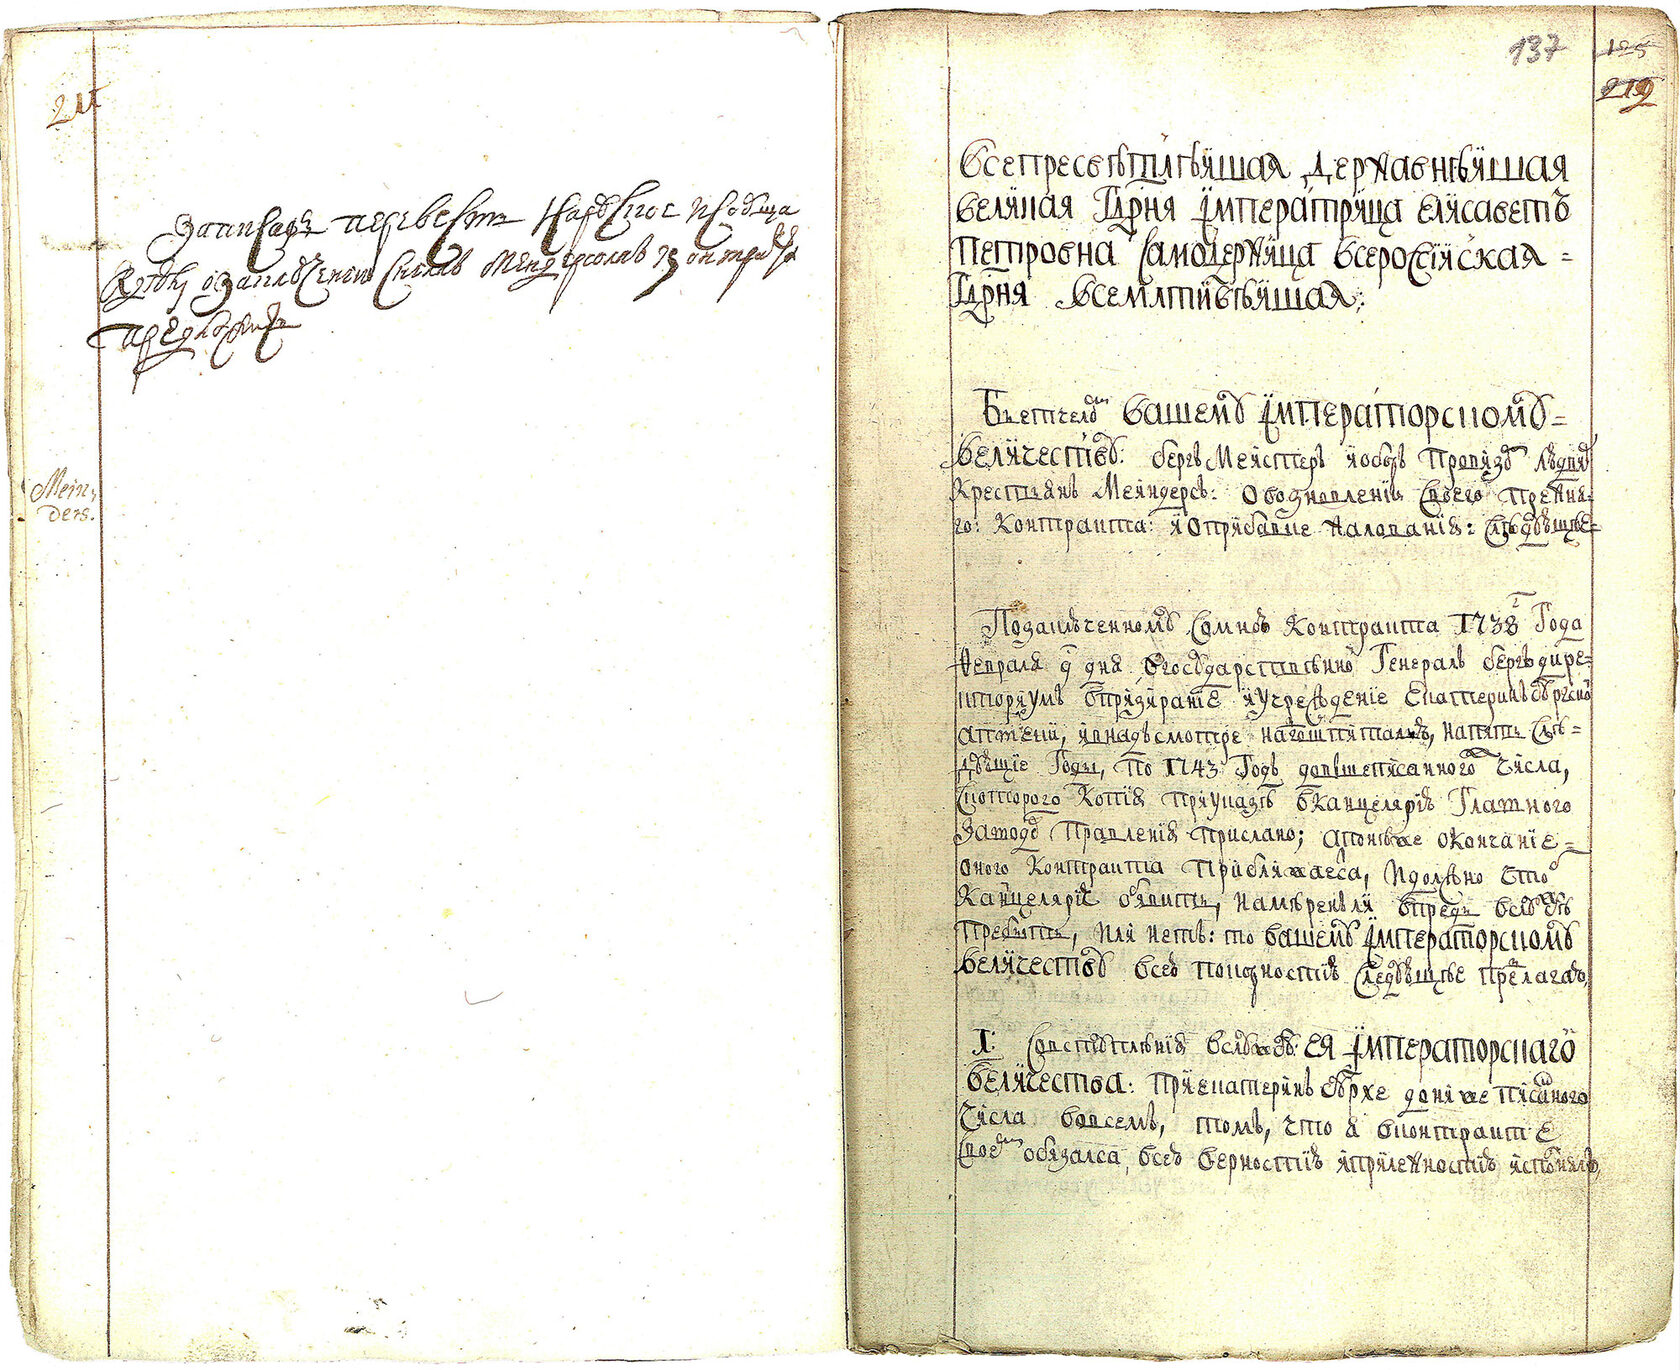 211
Записавъ перевесть на руское и сообща
Mein,
ders.
137
125
212
Всепресвѣтлѣйшая державнѣйшая
великая Гдрня імператрица елисаветъ
петровна Самодержица всеросiйская =
Гдрня всемлтивѣйшая:
Бьетчеломъ вашемꙋ імператорскомꙋ =
величествꙋ: бергъ Мейстеръ якобъ
крестианъ Мейндерсъ: Овозновленiи Своего прежня
го: контракта: иоприбавке жалованiя: Слѣдꙋюще
Позаключенномꙋ Сомною контракта 1738г Года
февраля 9 дня вгосꙋдарственно Генералъ бергъдире=
кториумъ впризиранiе иучрежденiе екатеринъбꙋрско
аптеки, инадъсмотре нагошпиталь, напять Слѣ=
дꙋющiе Годы, по 1743 Годъ довышеписанного числа,
Скоторого копiя приуказѣ вканцелярiю Главного
Заводо правленiя прислано; апонеже окончанiе =
оного контракта приближаетса, идолжно что
канцелярiи обявить, намѣренъли впредь вслꙋжбѣ
пребыть, или нетъ: то вашемꙋ імператорскомꙋ
величествꙋ всею покорностiю Следꙋющее предлагаю
1: вслꙋжбѣ: ея імператорскаго
величества: приекатеринъ бꙋрхе дониже писанного
числа вовсемъ, томъ, что я вконтракте
своемъ обязалса, всею верностiю иприлежностiю исполнялъ